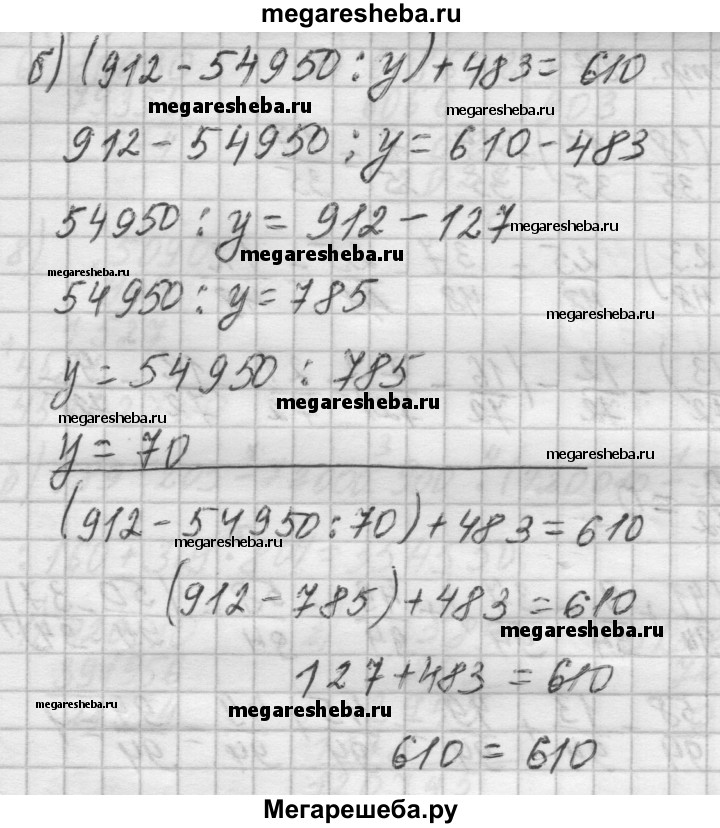 megaresheba.ru
б) (912 - 54950 : y) + 483 = 610
megaresheba.ru megaresheba.ru
912 - 54950 : y = 610 - 483
54950 : y = 912 - 127
megaresheba.ru
megaresheba.ru
megaresheba.ru
54950 : y = 785
megaresheba.ru
y = 54950 : 785
megaresheba.ru
megaresheba.ru
y = 70
megaresheba.ru
(912 - 54950 : 70) + 483 = 610
megaresheba.ru
(912 - 785) + 483 = 610
megaresheba.ru
127 + 483 = 610
megaresheba.ru
megaresheba.ru
610 = 610
Мегарешеба.ру